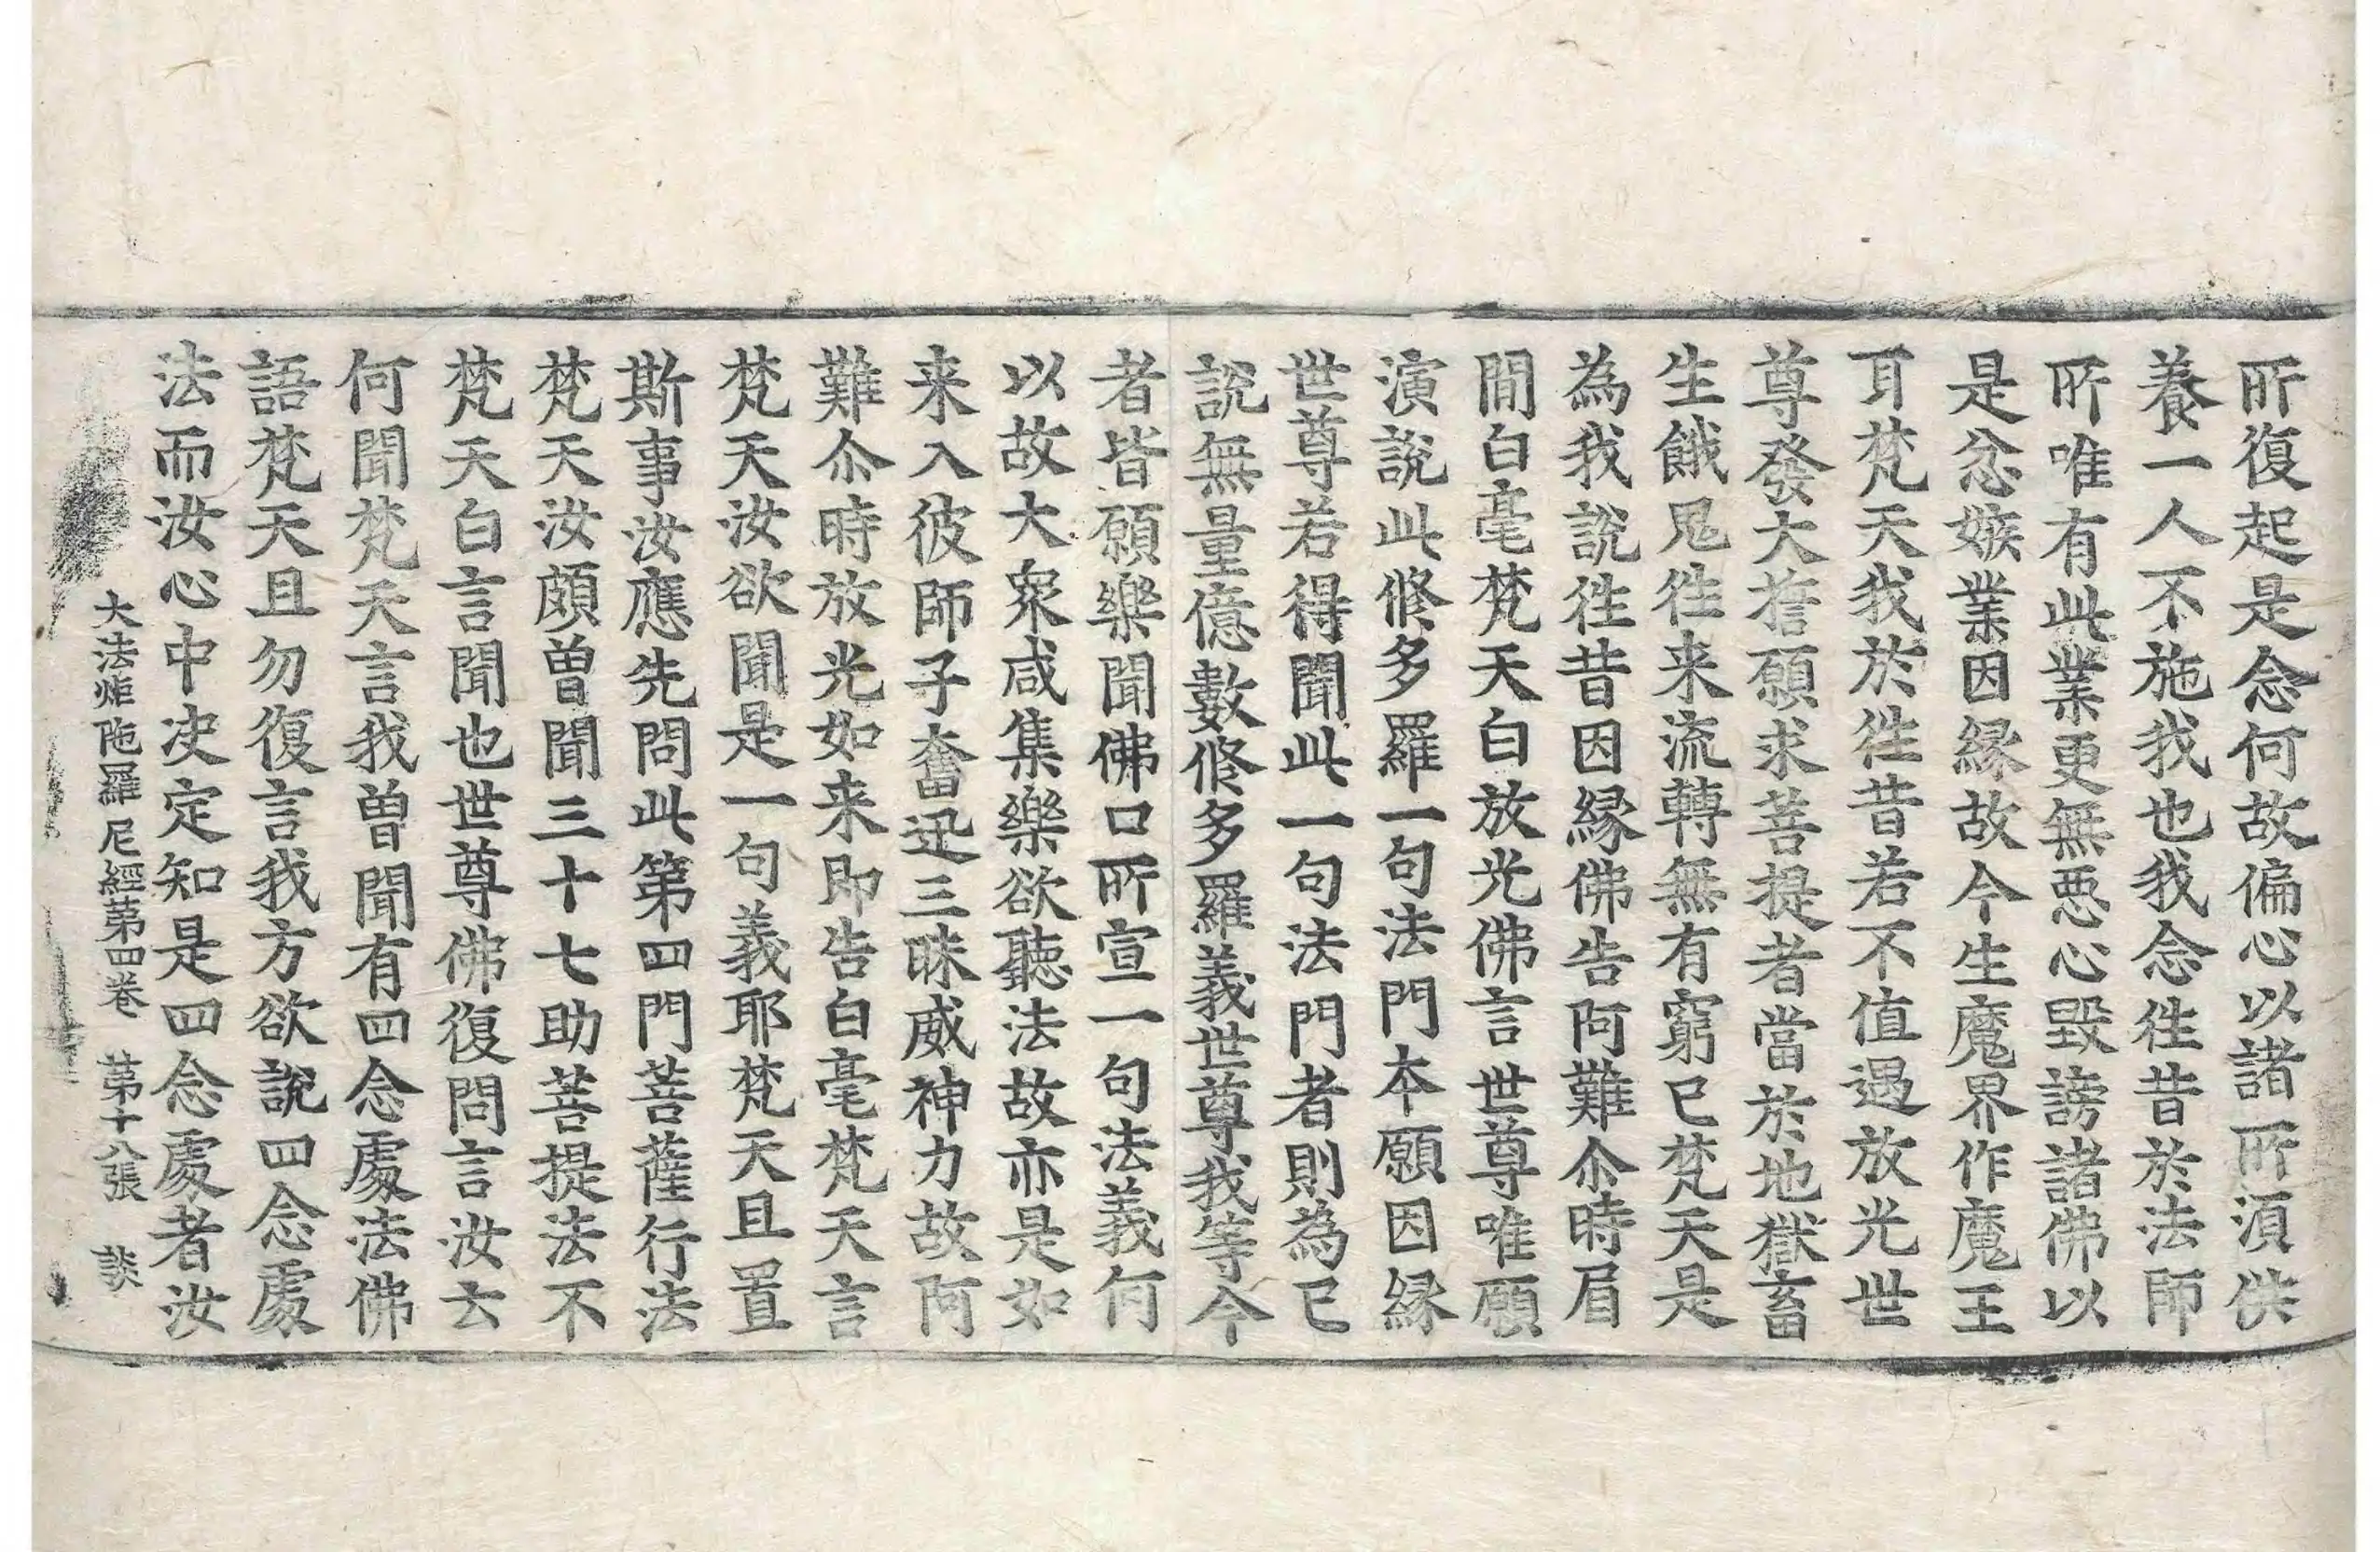 所復起是念何故偏心以諸所湏供
養一人不施我也我念徃昔於法師
所唯有此業更無悪心毀謗諸佛以
是忿嫉業因縁故今生魔界作魔王
耳梵天我於徃昔若不值遇放光世
尊發大誓願求菩提者當於地獄畜
生餓鬼徃来流轉無有窮已梵天是
為我說徃昔因縁佛告阿難尒時眉
間白毫梵天白放光佛言世尊唯願
演說此修多羅一句法門本願因縁
世尊若得聞此一句法門者則為已
說無量億數修多羅義世尊我等今
者皆願樂聞佛口所宣一句法義何
以故大衆咸集樂欲聽法故亦是如
来入彼師子奮迅三昧威神力故阿
難尒時放光如来即告白毫梵天言
梵天汝欲聞是一句義耶梵天且置
斯事汝應先問此第四門菩薩行法
梵天汝頗曽聞三十七助菩提法不
梵天白言聞也世尊佛復問言汝云
何聞梵天言我曽聞有四念處法佛
語梵天且勿復言我方欲說四念處
法而汝心中决定知是四念處者汝
大法炬陁羅尼經第四卷 第十八張 談